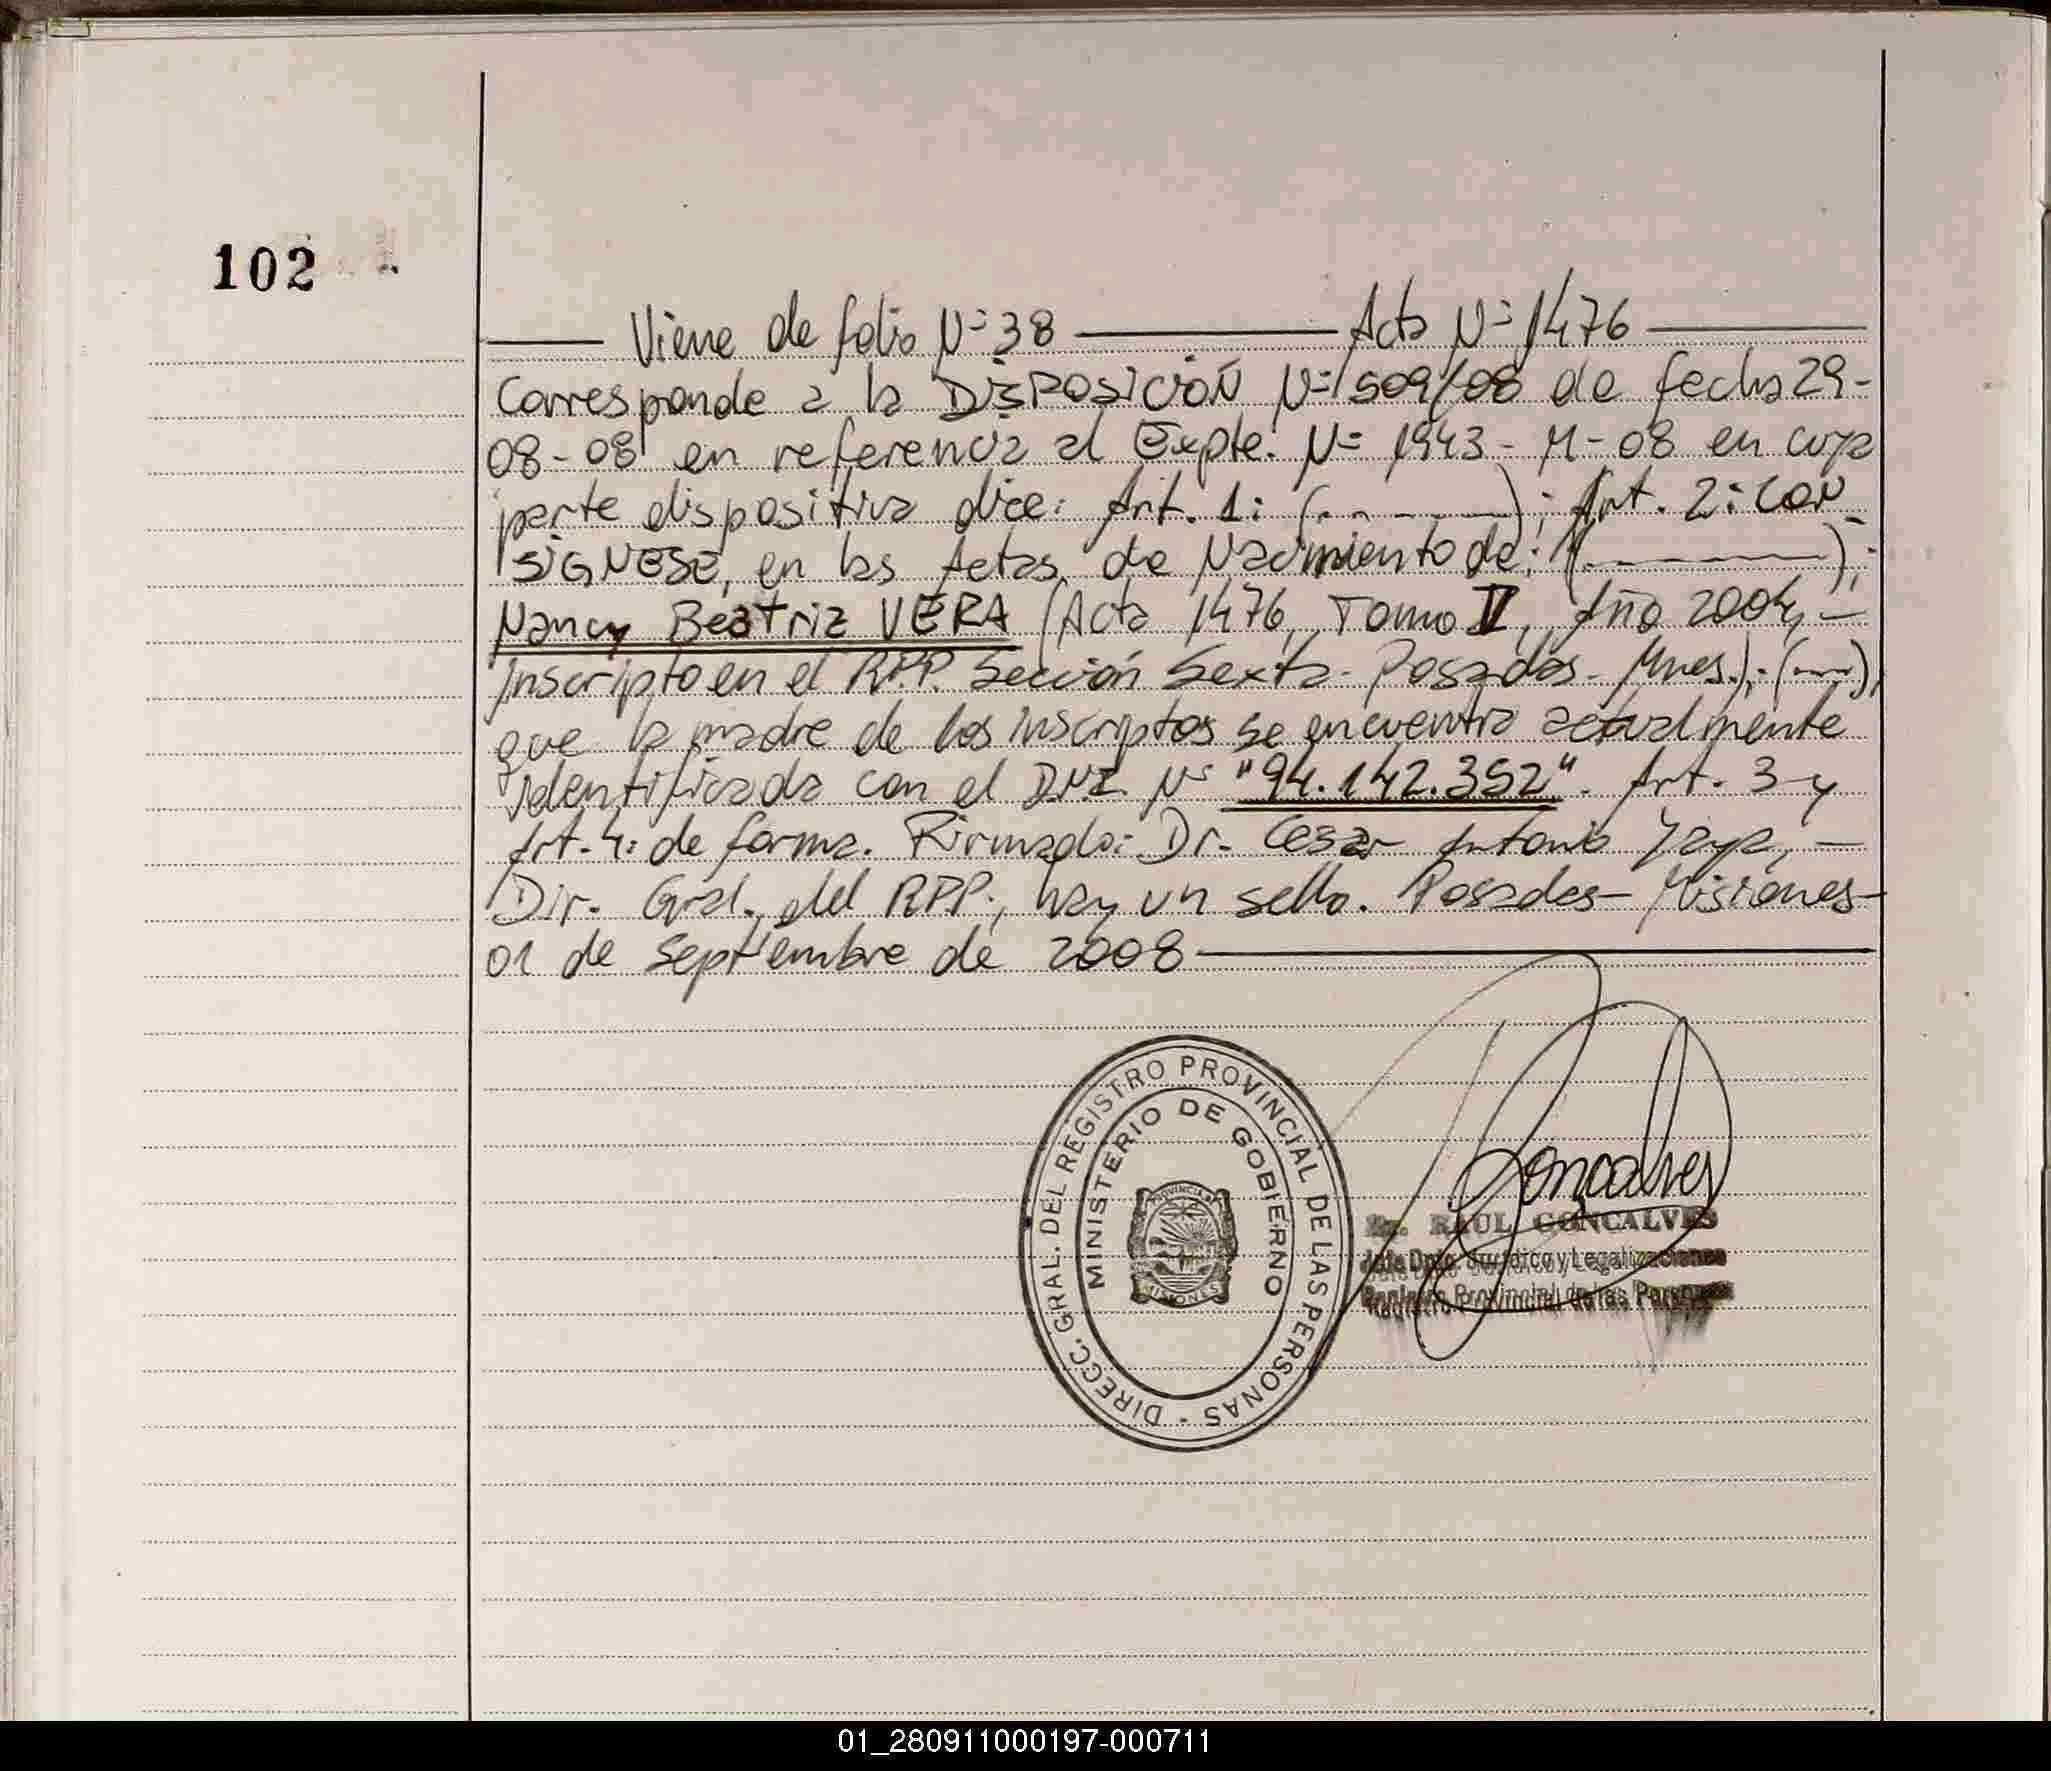 102
Viene de folio Nº 38 Acta Nº 1476
Corresponde a la DISPOSICIÓN Nº 1509/08 de fecha 29-
08-08 en referencia al Expte. Nº 1943-M-08 en cuya
parte dispositiva dice: Art. 1: (.. - - - -); Art. 2: CON_
SIGNESE, en las Actas de Nacimiento de: (.————);
Nancy Beatriz VERA (Acta 1476, Tomo V, Año 2004, —
Inscripto en el R.P.P. Sección Sexta - Posadas - Mnes.); (.—.),
que la madre de los inscriptos se encuentra actualmente
identificada con el D.N.I. Nº "94.142.352". Art. 3 y
Art. 4: de forma. Firmado: Dr. Cesar Antonio Yaya, —
Dir. Gral. del RPP., hay un sello. Posadas - Misiones -
01 de Septiembre de 2008
DIRECC. GRAL. DEL REGISTRO PROVINCIAL DE LAS PERSONAS -
MINISTERIO DE GOBIERNO
PROVINCIA
MISIONES
Goncalves
RAUL GONCALVES
Jefe Dpto. Jurídico y Legalizaciones
Registro Provincial de las Personas
01_280911000197-000711